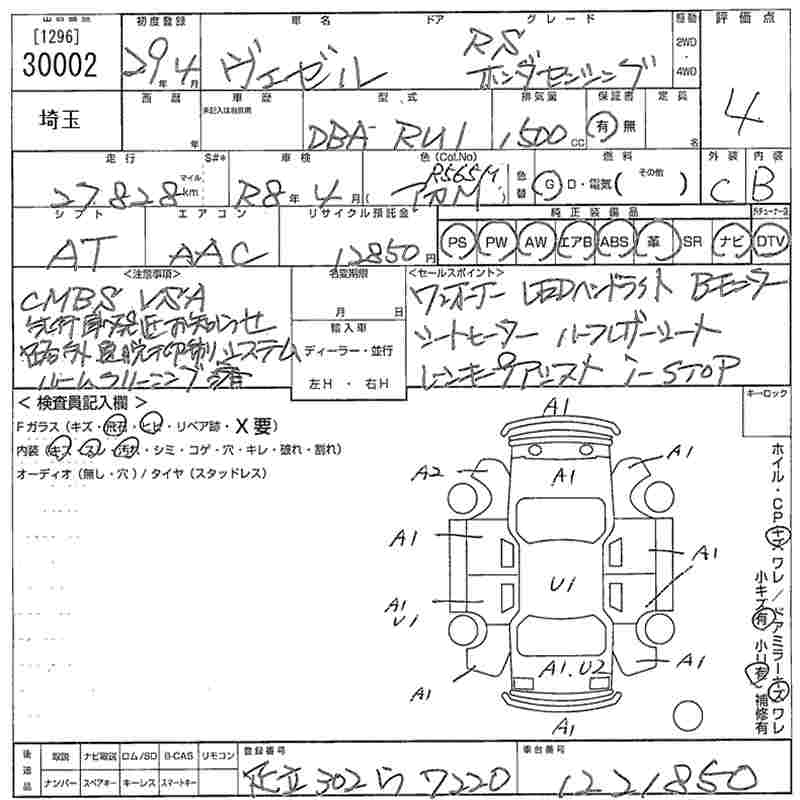 [1296]
30002
埼玉
初度登録 車名 ドア グレード 駆動 評価点
29年4月 ヴェゼル RS 2WD・4WD 4
ホンダセンシング
西暦 年 車歴 型式 排気量 保証書 定員
未記入は自家用 DBA-RU1 1500cc 有・無 名
走行 S#* 車検 色(Col.No) 燃料 外装 内装
27828 マイル km R8年4月 ( R565M ) 色替 G・D・電気( その他 ) C B
シフト エアコン リサイクル預託金 純正装備品
AT AAC 12850円 PS PW AW エアB ABS 革 SR ナビ DTV
<注意事項> 名変期限 <セールスポイント>
CMBS VSA
先行車発進お知らせ
路外逸脱抑制システム
ルームクリーニング済
月 日
輸入車
ディーラー・並行
左H ・ 右H
ワンオーナー LEDヘッドライト Bモニター
シートヒーター ハーフレザーシート
レーンキープアシスト i-STOP
<検査員記入欄> キーロック
Fガラス(キズ・飛石・ヒビ・リペア跡・X要)
内装(キズ・スレ・汚れ・シミ・コゲ・穴・キレ・破れ・割れ)
オーディオ(無し・穴)/タイヤ(スタッドレス)
A1
A2 A1 A1
A1 A1
A1 U1
U1
A1 A1,U2 A1
A1
ホイル・CPキズ ワレ/ドアミラーキズ ワレ
小キズ有 小凹有 補修有
後送品 取説 ナビ取説 ロム/SD B-CAS リモコン 登録番号 車台番号
ナンバー スペアキー キーレス スマートキー 足立302ら7220 1221850